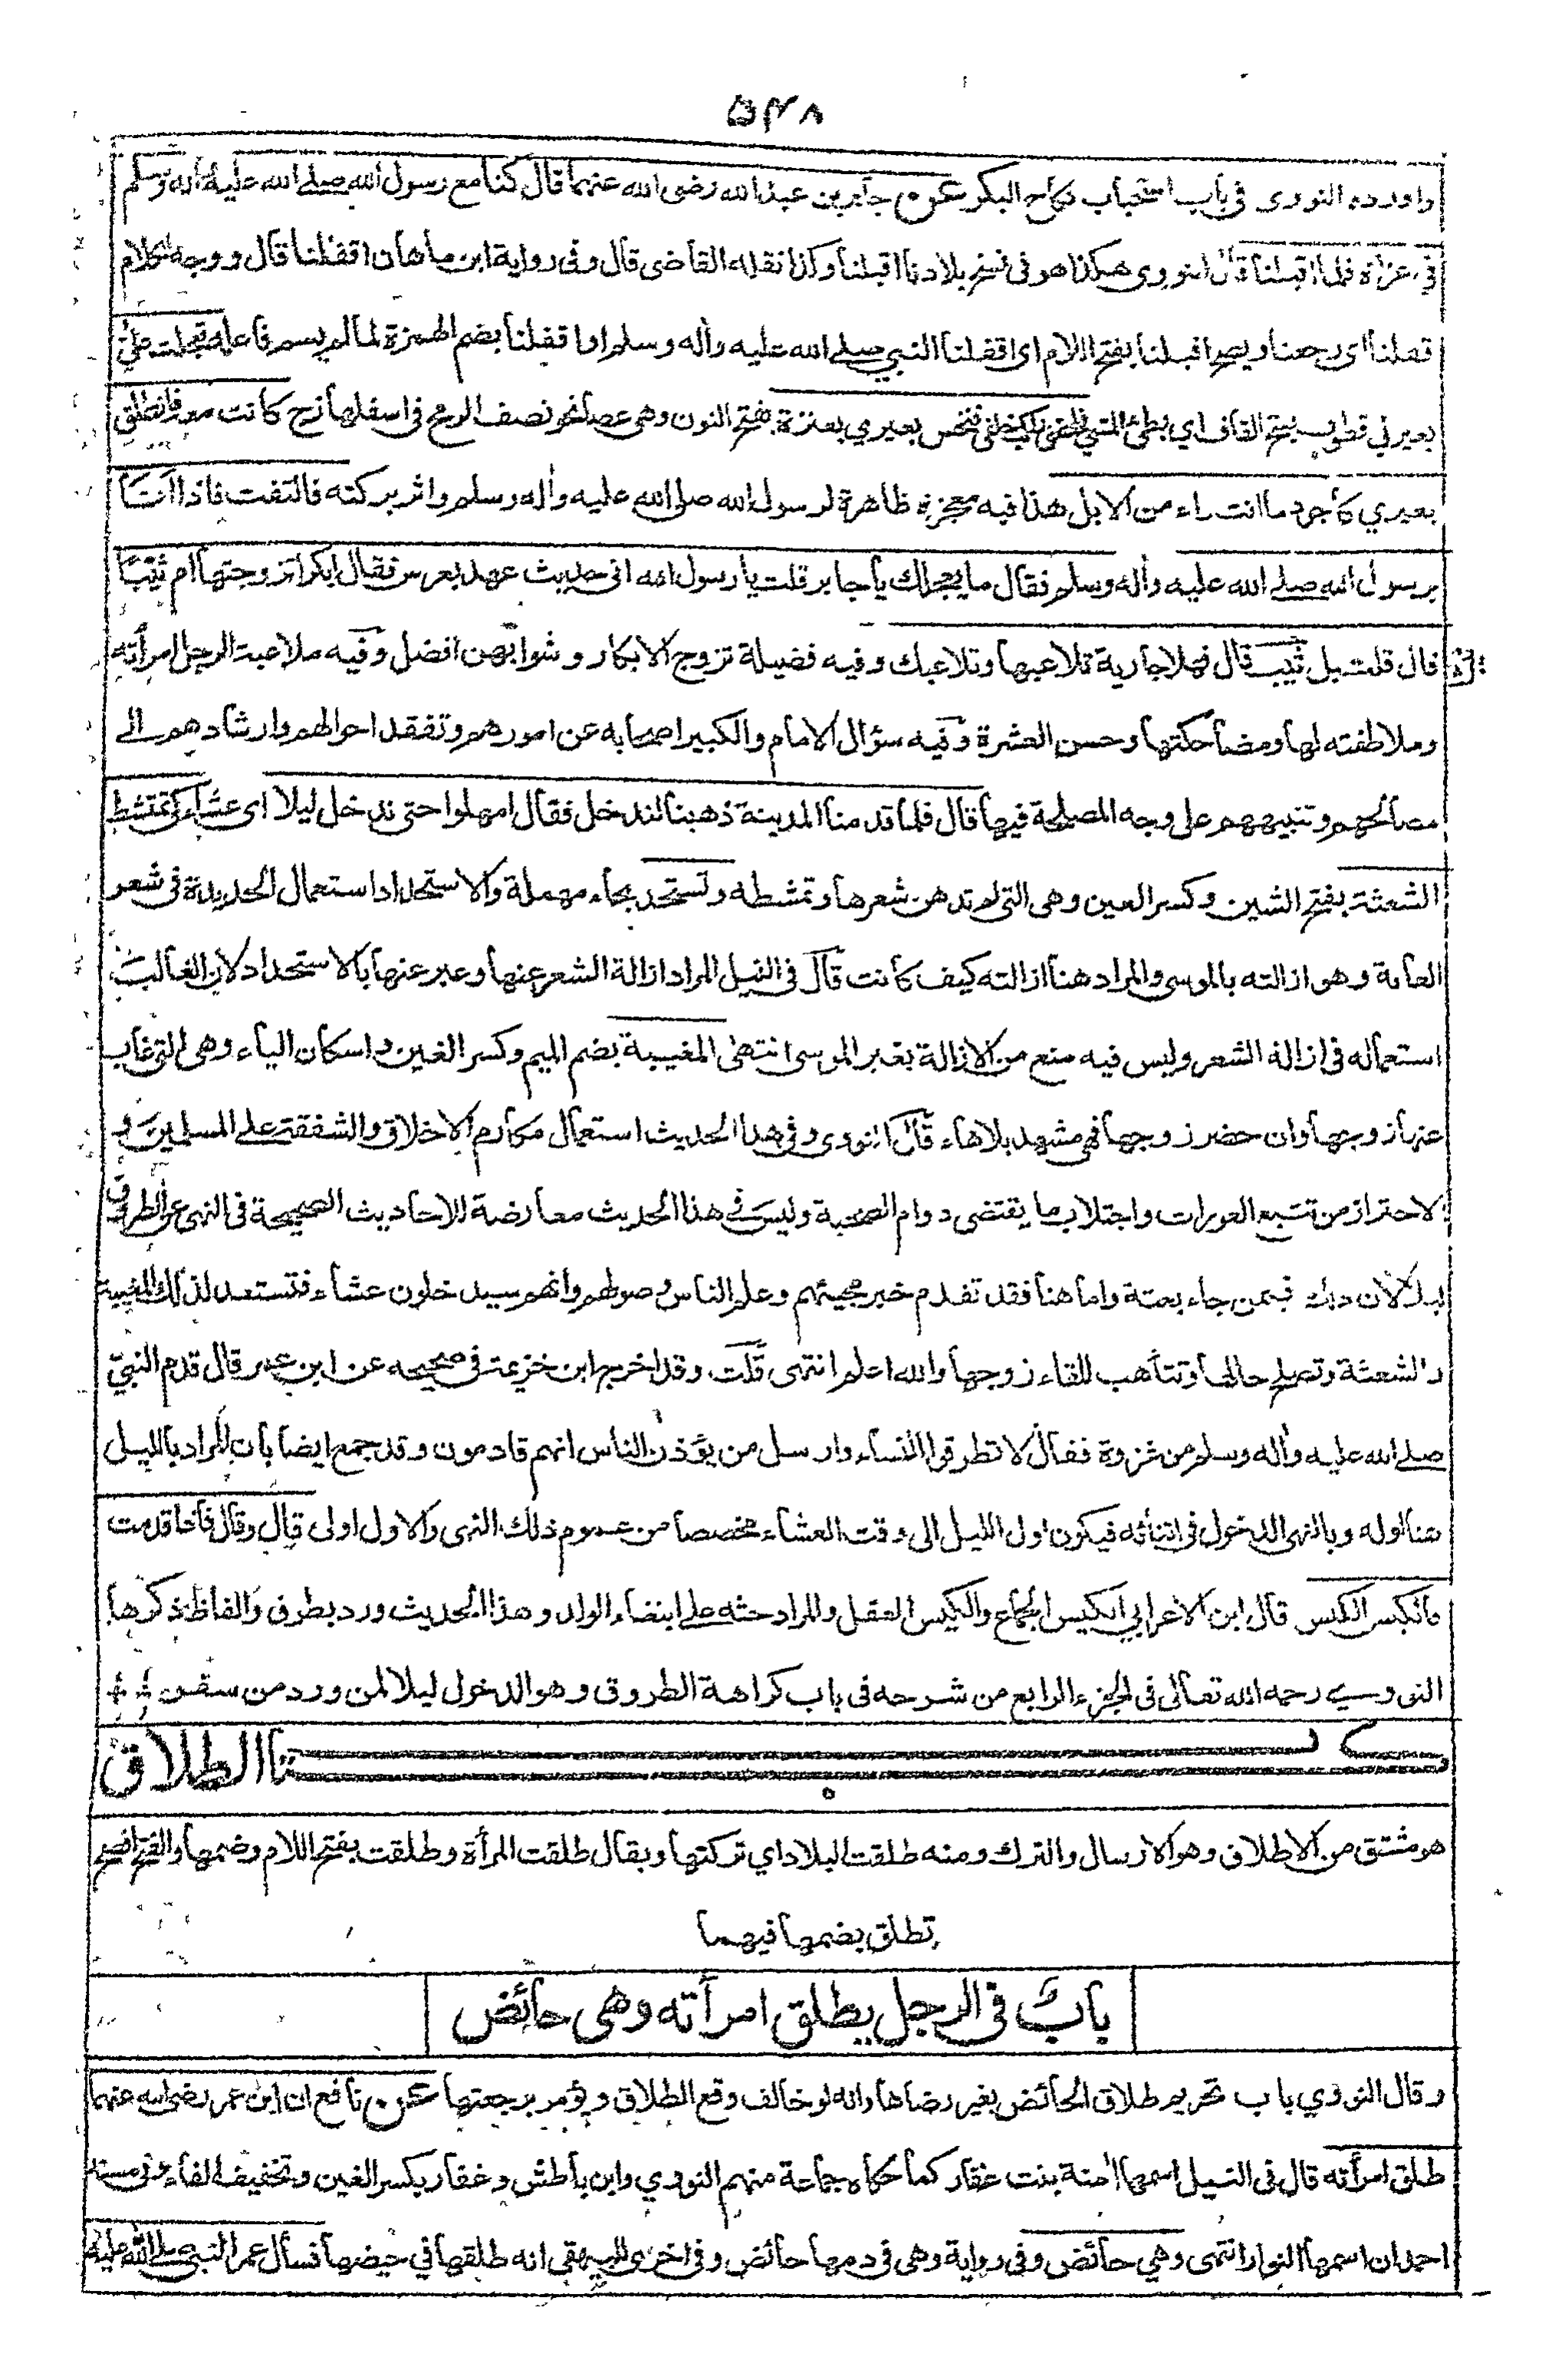 ۵۴۸
واورده النووى فى باب استحباب نكاح البكر عن جابر بن عبد الله رضى الله عنهما قال كنا مع رسول الله صلے الله عليه واله وسلم
فى غزاة فلما اقبلنا قال النووى هكذا هو فى نسخ بلادنا اقبلنا وكذا نقله القاضى قال وفى رواية ابن ماهان اقفلنا قال ووجه الكلام
قفلنا اى رجعنا ويصح اقبلنا بفتح اللام اى اقفلنا النبي صلے الله عليه واله وسلم او اقفلنا بضم الهمزة لما لم يسم فاعله تعجلت على
بعير لى قطوف بفتح القاف اي بطئ المشي فلحقنى راكب خلفى فنخس بعيري بعنزة بفتح النون وهى عصا نحو نصف الرمح فى اسفلها زج كانت معه فانطلق
بعيري كاجود ما انت راء من الابل هذا فيه معجزة ظاهرة لرسول الله صلى الله عليه واله وسلم واثر بركته فالتفت فاذا انا
برسول الله صلے الله عليه واله وسلم فقال ما يعجلك يا جابر قلت يا رسول الله انى حديث عهد بعرس فقال ابكرا تزوجتها ام ثيبا
قال قلت بل ثيب قال فهلا جارية تلاعبها وتلاعبك وفيه فضيلة تزوج الابكار وثوابهن افضل وفيه ملاعبة الرجل امرأته
وملاطفته لها ومضاحكتها وحسن العشرة وفيه سؤال الامام والكبير اصحابه عن امورهم وتفقد احوالهم وارشادهم الى
مصالحهم وتنبيههم على وجه المصلحة فيها قال فلما قدمنا المدينة ذهبنا لندخل فقال امهلوا حتى ندخل ليلا اى عشاء كى تمتشط
الشعثة بفتح الشين وكسر العين وهى التى لم تدهن شعرها وتمشطه وتستحد بحاء مهملة والاستحداد استعمال الحديدة فى شعر
العانة وهو ازالته بالموسى والمراد هنا ازالته كيف كانت قال فى النيل المراد ازالة الشعر عنها وعبر عنها بالاستحداد لان الغالب
استعماله فى ازالة الشعر وليس فيه منع من الازالة بغير الموسى انتهى المغيبة بضم الميم وكسر الغين واسكان الياء وهى التى غاب
عنها زوجها وان حضر زوجها فهى مشهد بلا هاء قال النووى وفى هذا الحديث استعمال مكارم الاخلاق والشفقة على المسلمين و
الاحتراز من تتبع العورات واجتلاب ما يقتضى دوام الصحبة وليس فى هذا الحديث معارضة للاحاديث الصحيحة فى النهى عن الطروق
ليلا لان ذلك فيمن جاء بغتة واما هنا فقد تقدم خبر مجيئهم وعلم الناس وصولهم وانهم سيدخلون عشاء فتستعد لذلك المغيبة
والشعثة وتصلح حالها وتتأهب للقاء زوجها والله اعلم انتهى قلت وقد اخرجها ابن خزيمة فى صحيحه عن ابن عمر قال قدم النبيّ
صلے الله عليه واله وسلم من غزوة فقال لا تطرقوا النساء وارسل من يؤذن الناس انهم قادمون وقد جمع ايضا بان المراد بالليل
هنا اوله وبالنهى الدخول فى اثنائه فيكون اول الليل الى وقت العشاء مخصصا من عموم ذلك النهى والاول اولى قال وقال فاذا قدمت
فالكيس الكيس قال ابن الاعرابي الكيس الجماع والكيس العقل والمراد حثه على ابتغاء الولد وهذا الحديث ورد بطرق والفاظ ذكرها
النووي رحمه الله تعالى فى الجزء الرابع من شرحه فى باب كراهة الطروق وهو الدخول ليلا لمن ورد من سفر
كتاب الطلاق
هو مشتق من الاطلاق وهو الارسال والترك ومنه طلقت البلاد اي تركتها ويقال طلقت المرأة وطلقت بفتح اللام وضمها والفتح افصح
تطلق بضمها فيهما
باب فى الرجل يطلق امرأته وهى حائض
وقال النووي باب تحريم طلاق الحائض بغير رضاها وانه لو خالف وقع الطلاق ويؤمر برجعتها عن نافع ان ابن عمر رضى الله عنهما
طلق امرأته قال فى النيل اسمها امنة بنت غفار كما حكاه جماعة منهم النووي وابن باطش وغفار بكسر الغين وتخفيف الفاء وفى مسند
احمد ان اسمها النوار انتهى وهي حائض وفى رواية وهى فى دمها حائض وفى اخرى للبيهقى انه طلقها في حيضها فسأل عمر النبي صلے الله عليه